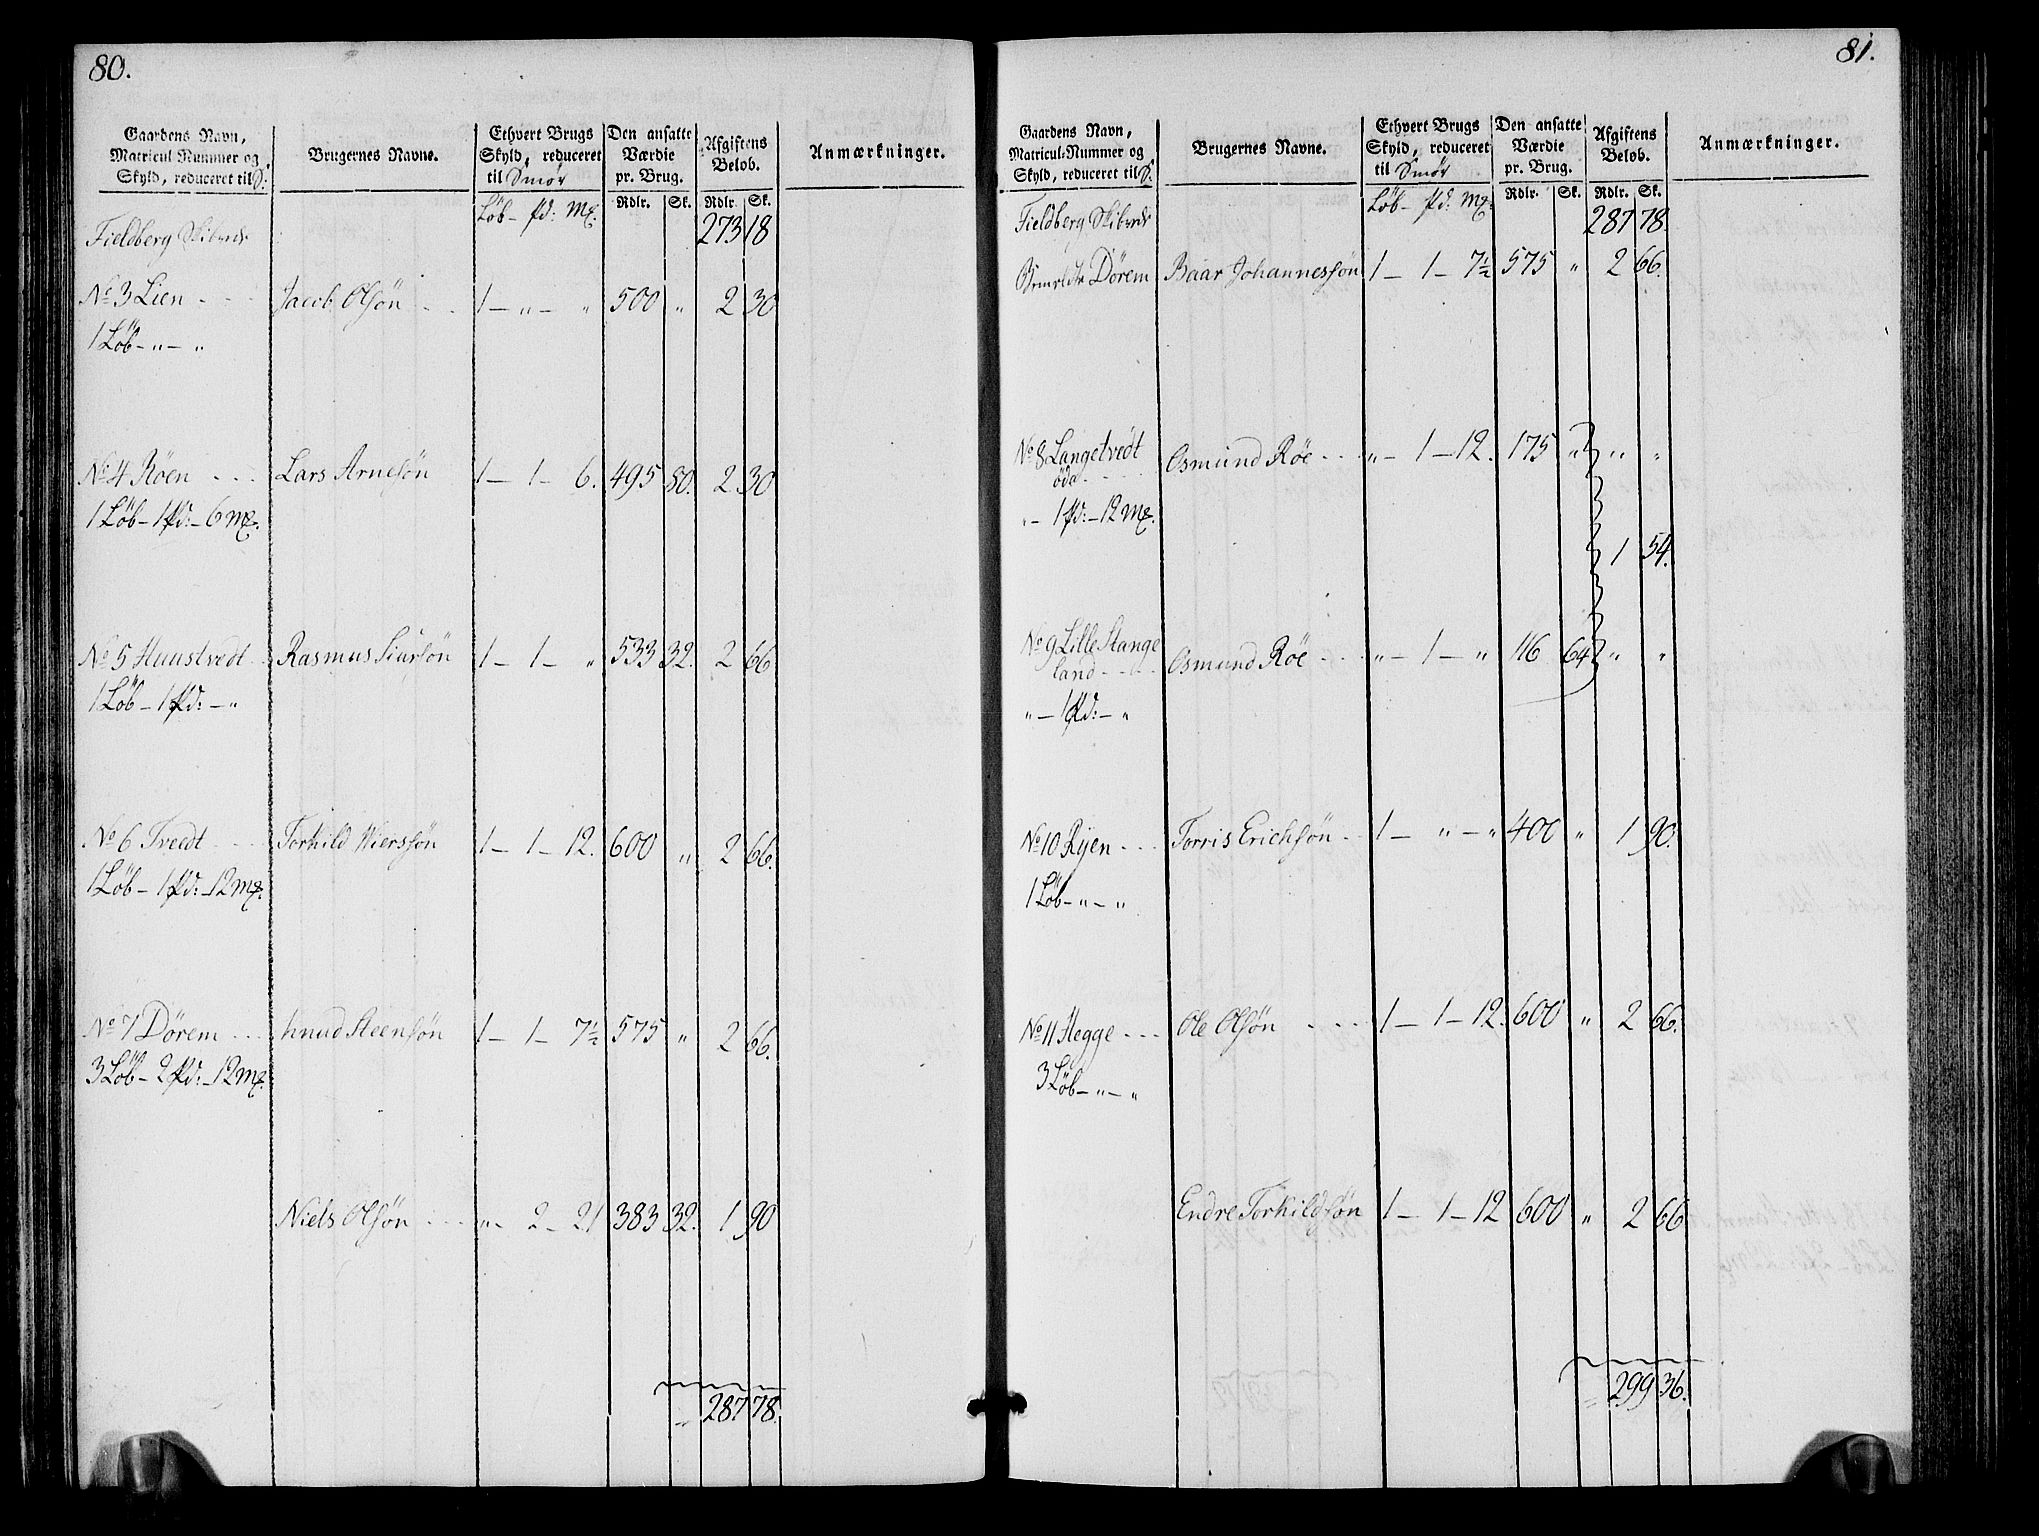 80.
Gaardens Navn, Matricul-Nummer og Skyld, reduceret til S: | Brugernes Navne. | Ethvert Brugs Skyld, reduceret til Smör | Den ansatte Værdie pr. Brug. | Afgiftens Beløb. | Anmærkninger.
Löb - Pd: Mk: | Rdlr. | Sk. | Rdlr. | Sk.
Fieldberg Skibrede 273 18
No 3 Lien - - - Jacob Olsön - - 1 - " - " 500 " 2 30
1 Löb - " - "
No 4 Röen - - - Lars Arnesön 1 - 1 - 6. 495 80. 2 30
1 Löb - 1 Pd: - 6 Mk.
No 5 Hunstvedt - Rasmus Siursön 1 - 1 - " 533 32. 2 66
1 Löb - 1 Pd: - "
No 6 Tvedt - - - Torkild Wierssön 1 - 1 - 12. 600 " 2 66.
1 Löb - 1 Pd: - 12 Mk.
No 7 Dörem - - - Knud Steensön 1 - 1 - 7½ 575 " 2 66.
3 Löb - 2 Pd: - 12 Mk.
Niels Olsön - - - " - 2 - 21 383 32. 1 90
287 78.
81.
Gaardens Navn, Matricul-Nummer og Skyld, reduceret til S: | Brugernes Navne. | Ethvert Brugs Skyld, reduceret til Smör | Den ansatte Værdie pr. Brug. | Afgiftens Beløb. | Anmærkninger.
Löb - Pd: Mk: | Rdlr. | Sk. | Rdlr. | Sk.
Fieldberg Skibrede 287 78.
Dörem Baar Johannessön 1 - 1 - 7½ 575 " 2 66.
No 8 Langetvedt Osmund Röe - - - " - 1 - 12. 175 " " "
öde - - - -
" - 1 Pd: - 12 Mk.
1 54.
No 9 Lille Stange Osmund Röe - - - " - 1 - " 116 64 " "
land - - - -
" - 1 Pd: - "
No 10 Ryen - - - Torris Erichsön - - 1 - " - " 400 " 1 90.
1 Löb - " - "
No 11 Hegge - - - Ole Olsön - - - - 1 - 1 - 12. 600 " 2 66.
3 Löb - " - "
Endre Torkildsön 1 - 1 - 12 600 " 2 66
299 36.